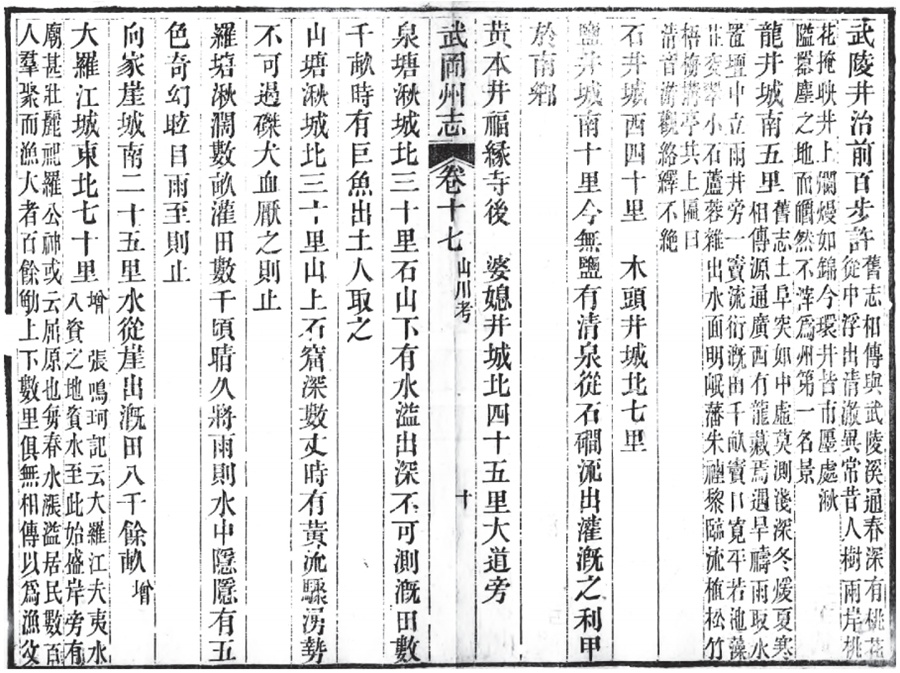 武陵井治前百步許
舊志相傳與武陵溪通春深有桃花
從中浮出清澈異常昔人樹兩岸桃
花掩映井上爛熳如錦今環井皆市廛處湫
隘囂塵之地而皭然不滓爲州第一名景
龍井城南五里
舊志土阜突如中虛莫測淺深冬煖夏寒
相傳源通廣西有龍藏焉遇旱禱雨取水
置壇中立雨井旁一竇流衍漑田千畝竇口寬平若池藻
芷交翠小石蘆蓉雜出水面明岷藩朱禋黎臨流植松竹
梧構亭其上區曰
清音遊觀絡繹不絶
石井城西四十里　木頭井城北七里
鹽井城南十里今無鹽有清泉從石磵流出灌漑之利甲
於南鄉
黃本井福緣寺後　婆媳井城北四十五里大道旁
武岡州志　卷十七　山川考　十
泉塘湫城北三十里石山下有水溢出深不可測漑田數
千畝時有巨魚出土人取之
山塘湫城北三十里山上石窟深數丈時有黃流驟湧勢
不可遏磔犬血厭之則止
羅塘湫濶數畝灌田數千頃晴久將雨則水中隱隱有五
色奇幻眩目雨至則止
向家崖城南二十五里水從崖出漑田八千餘畝增
大羅江城東北七十里
增　張鳴珂記云大羅江夫夷水
入資之地資水至此始盛岸旁有
廟甚壯麗祀羅公神或云屈原也每春水漲溢居民數百
人羣聚而漁大者百餘觔上下數里俱無相傳以爲漁汝